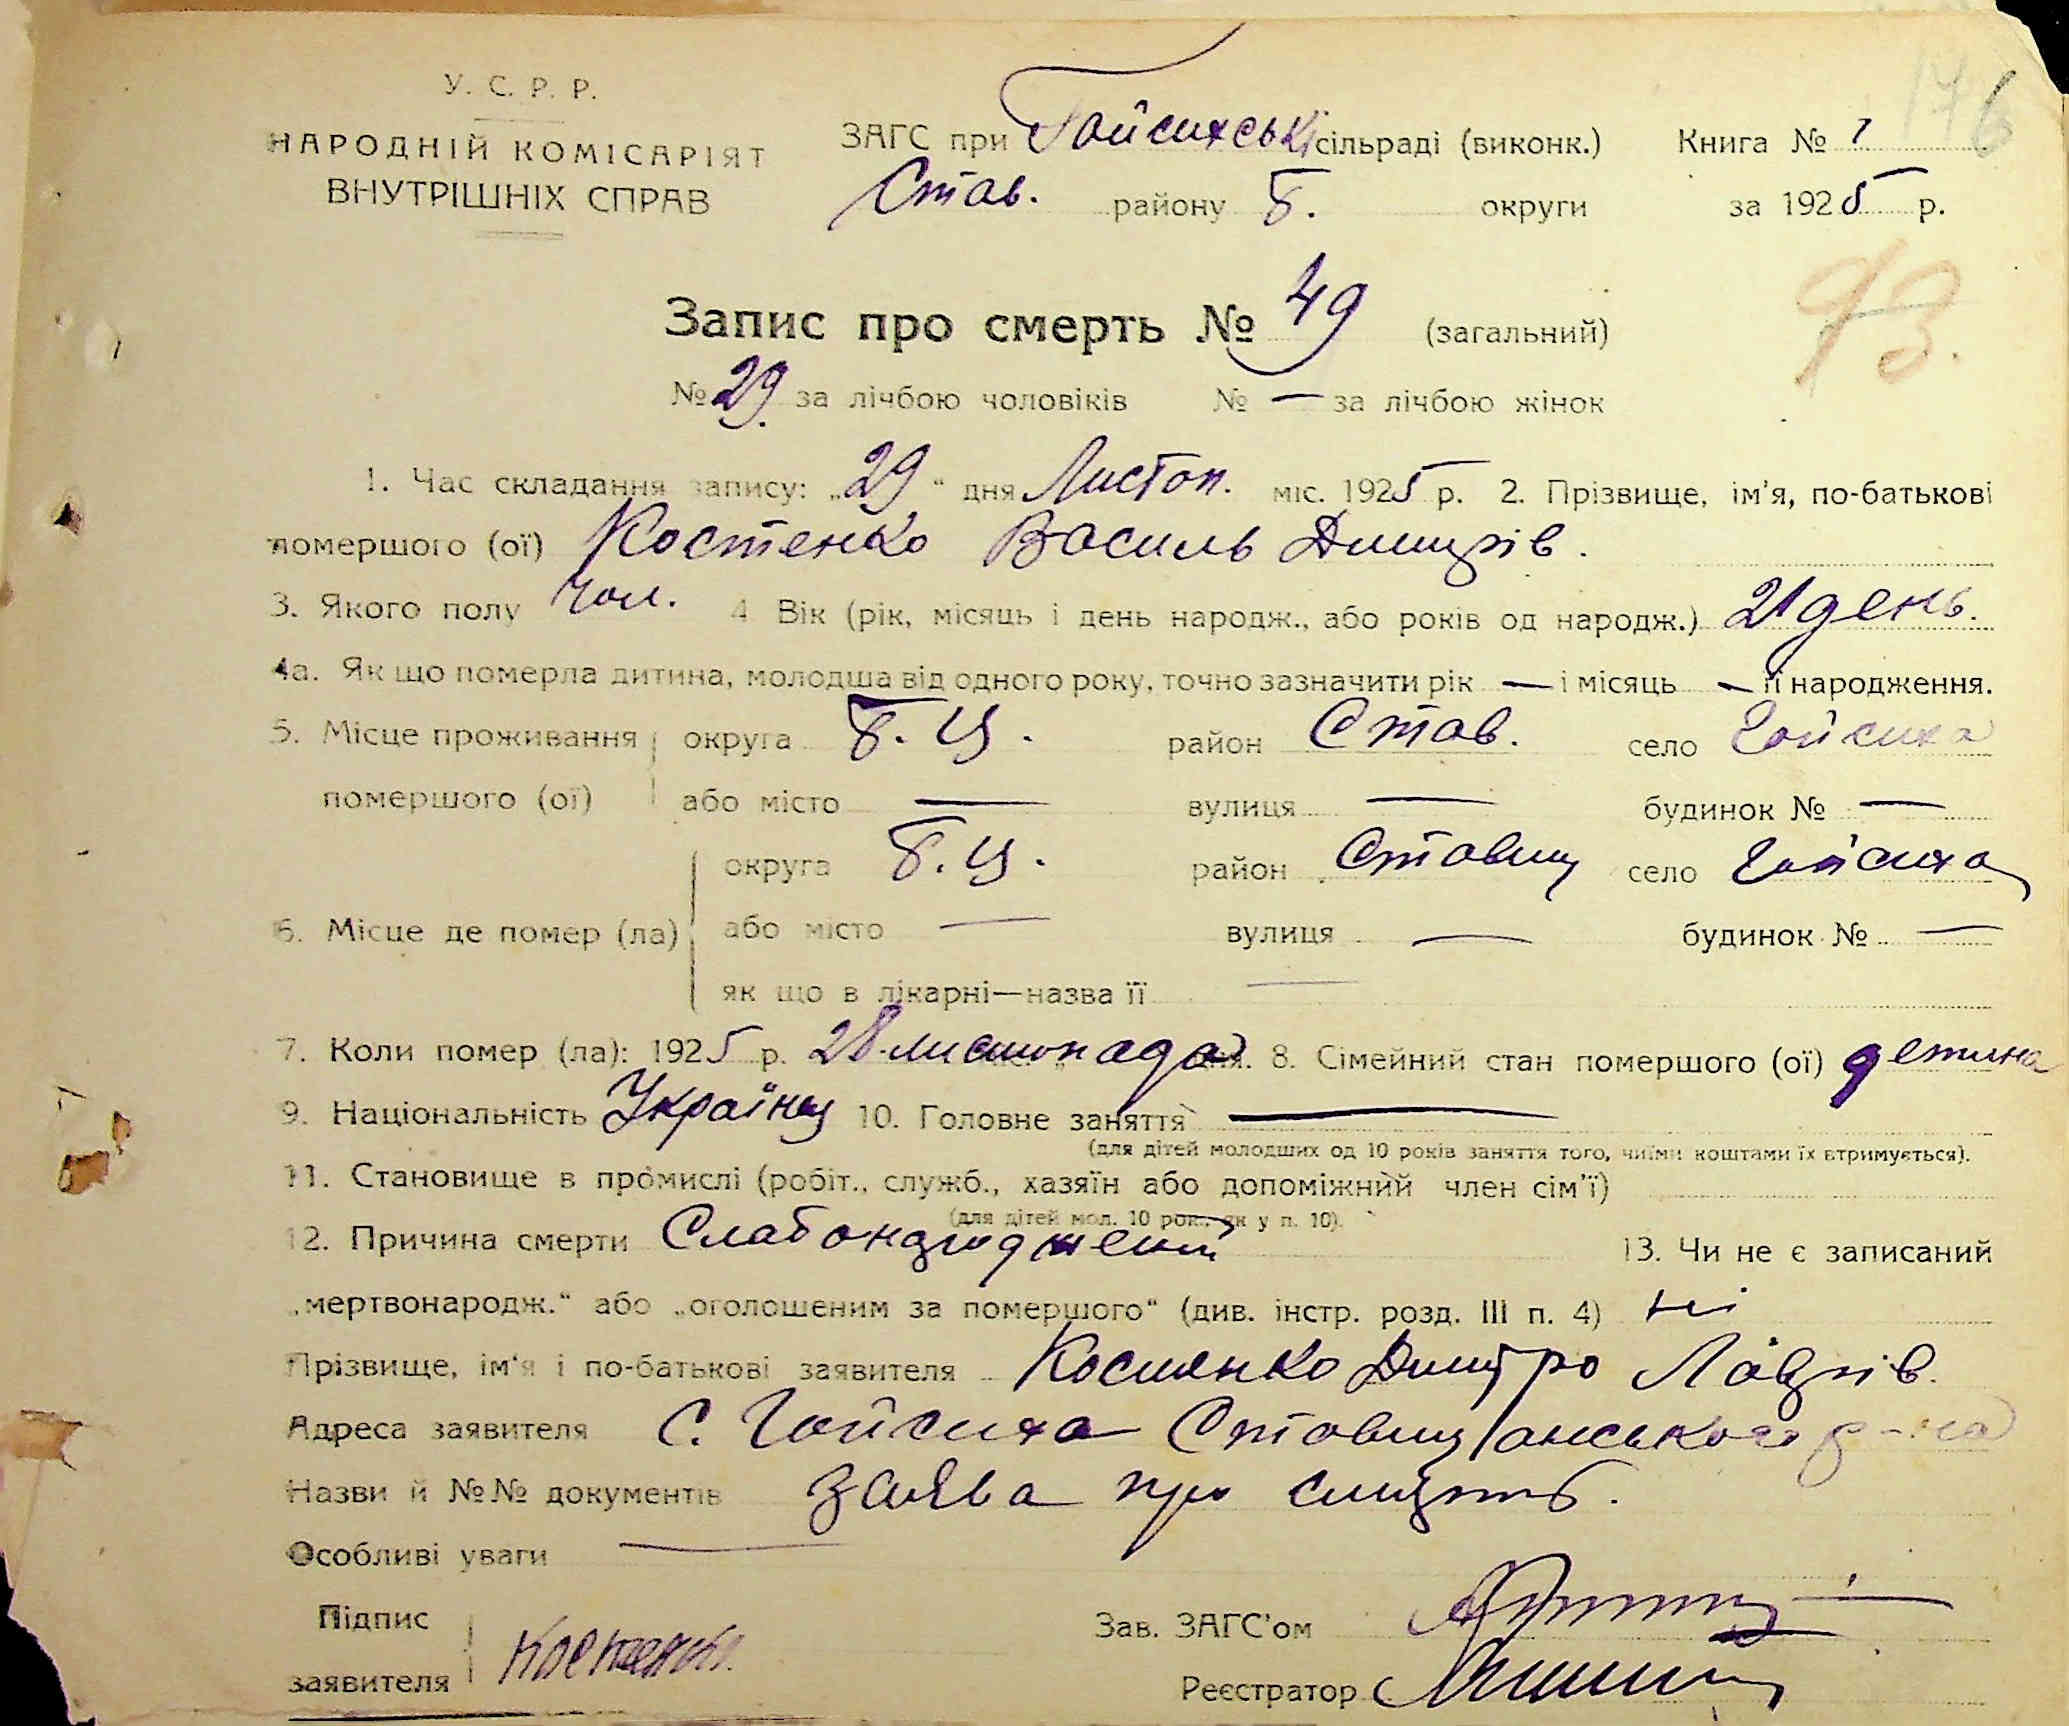 176
У. С. Р. Р.
НАРОДНІЙ КОМІСАРІЯТ
ВНУТРІШНІХ СПРАВ
ЗАГС при Гойсихські сільраді (виконк.) Книга № 1
Став. району Б. округи за 1925 р.
Запис про смерть № 49 (загальний)
93.
№ 29. за лічбою чоловіків № — за лічбою жінок
1. Час складання запису: „29“ дня Листоп. міс. 1925 р. 2. Прізвище, ім'я, по-батькові
помершого (ої) Костенко Василь Димитрів.
3. Якого полу чол. 4 Вік (рік, місяць і день народж., або років од народж.) 21 день.
4а. Як що померла дитина, молодша від одного року, точно зазначити рік — і місяць — її народження.
5. Місце проживання округа Б. Ц. район Став. село Гойсиха
помершого (ої) або місто — вулиця — будинок № —
округа Б. Ц. район Ставищ село Гойсиха
6. Місце де помер (ла) або місто — вулиця — будинок № —
як що в лікарні—назва її —
7. Коли помер (ла): 1925 р. 28 листопада дня. 8. Сімейний стан помершого (ої) детина
9. Національність Українец 10. Головне заняття —
(для дітей молодших од 10 років заняття того, чиїми коштами їх втримується).
11. Становище в промислі (робіт., служб., хазяїн або допоміжний член сім'ї)
(для дітей мол. 10 рок., як у п. 10).
12. Причина смерти Слабонароджений 13. Чи не є записаний
„мертвонародж.“ або „оголошеним за помершого“ (див. інстр. розд. III п. 4) ні
Прізвище, ім'я і по-батькові заявителя Костенко Димитро Лаврів.
Адреса заявителя С. Гойсиха Ставищанського р-на
Назви й №№ документів Заява про смерть.
Особливі уваги —
Підпис
заявителя Костенко.
Зав. ЗАГС'ом
Реєстратор